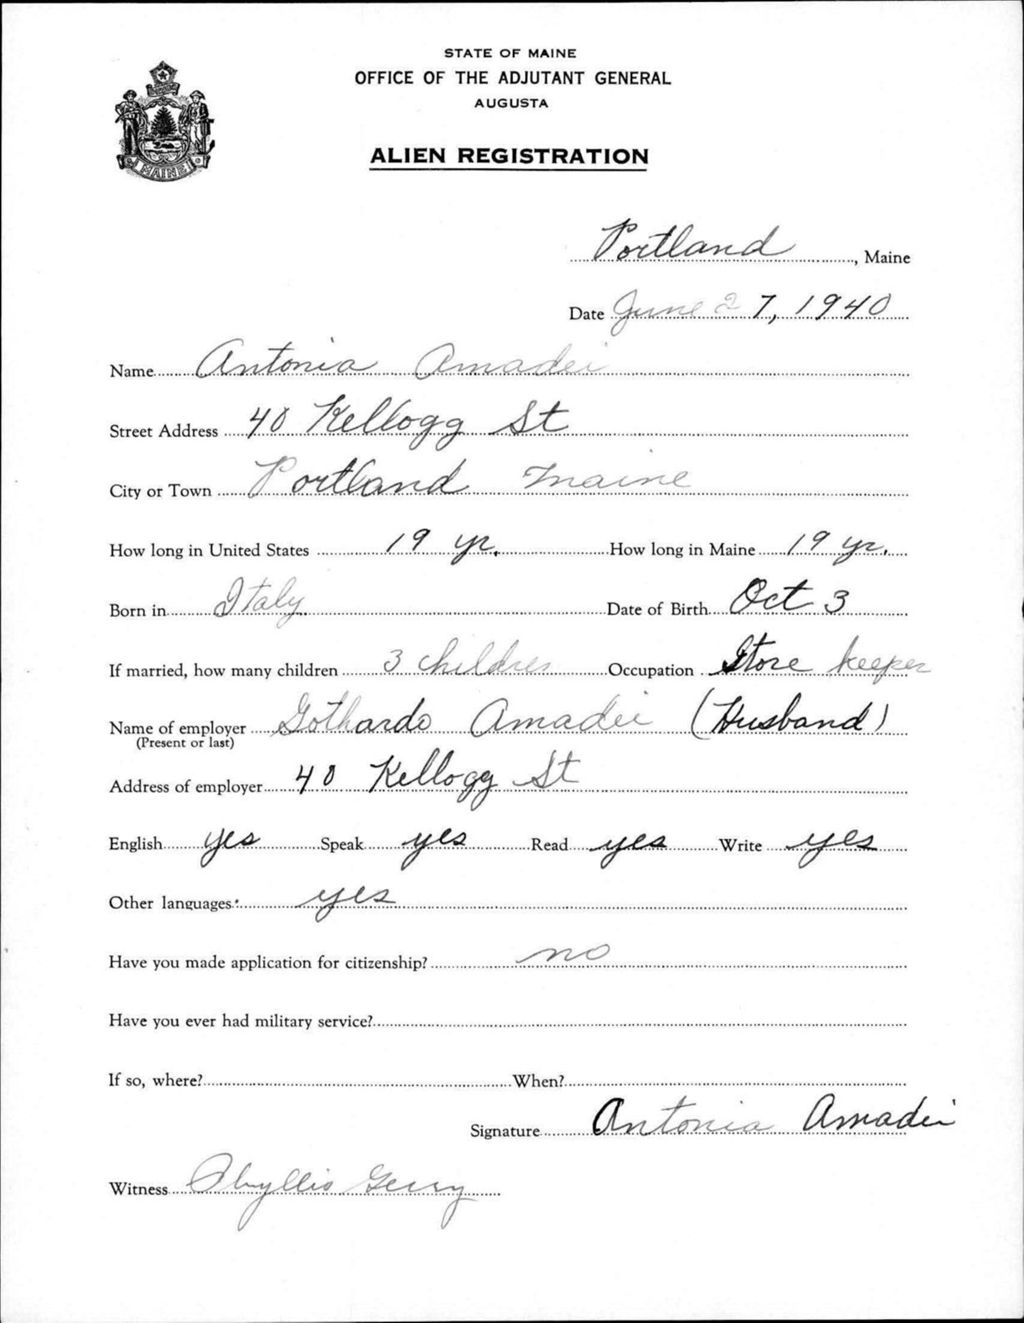 STATE OF MAINE
OFFICE OF THE ADJUTANT GENERAL
AUGUSTA
ALIEN REGISTRATION
MAINE
Portland, Maine
Date June 27, 1940
Name Antonia Amadei
Street Address 40 Kellogg St
City or Town Portland Maine
How long in United States 19 yr. How long in Maine 19 yr.
Born in Italy Date of Birth Oct 3
If married, how many children 3 children Occupation Store keeper
Name of employer Gothardo Amadei (Husband)
(Present or last)
Address of employer 40 Kellogg St
English yes Speak yes Read yes Write yes
Other languages yes
Have you made application for citizenship? no
Have you ever had military service?
If so, where? When?
Signature Antonia Amadei
Witness Phyllis Gerry